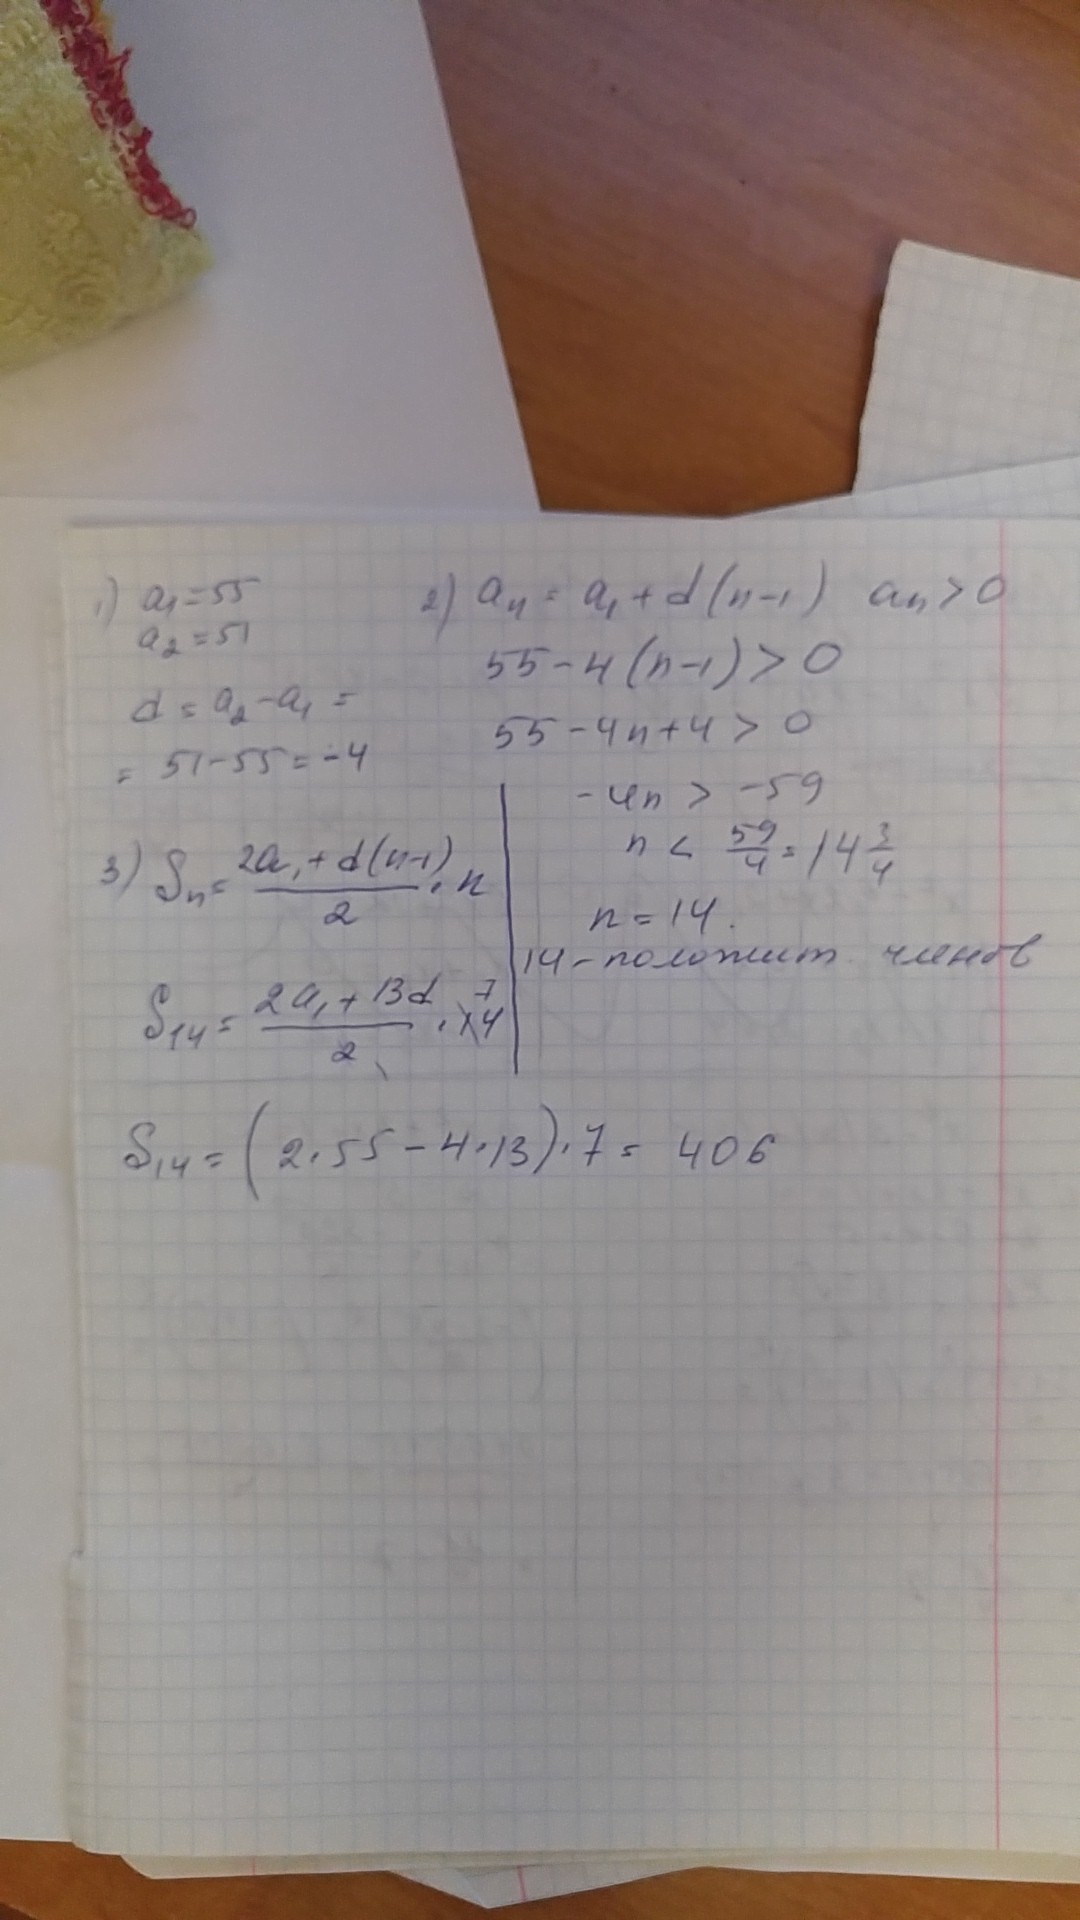 1) a₁=55
a₂=51
d = a₂-a₁ =
= 51-55 = -4
2) aₙ = a₁ + d(n-1) aₙ > 0
55-4(n-1) > 0
55-4n+4 > 0
-4n > -59
n < 59/4 = 14 3/4
n = 14.
14-положит. членов
3) Sₙ = (2a₁ + d(n-1))/2 · n
S₁₄ = (2a₁ + 13d)/2 · 14 7
S₁₄ = (2·55 - 4·13)·7 = 406